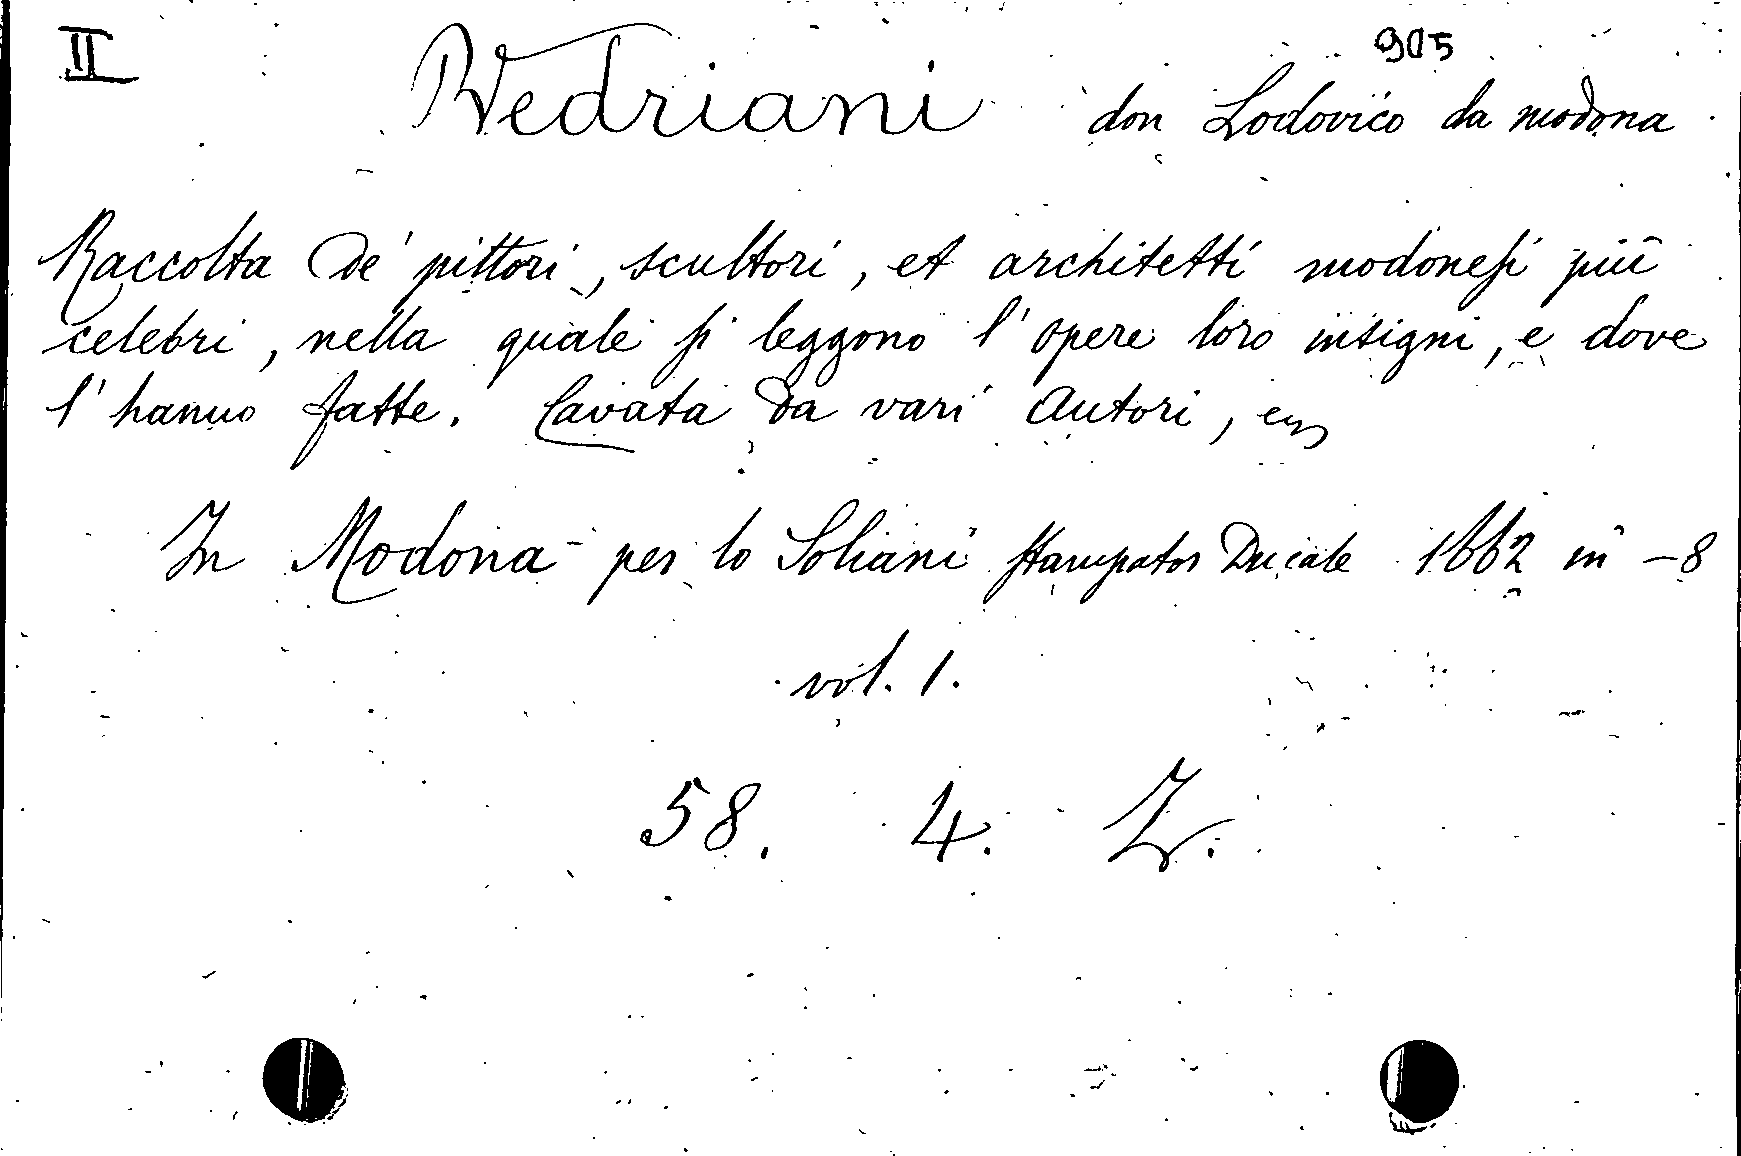 II
905
Vedriani don Lodovico da modona
Raccolta de' pittori, scultori, et architetti modonesi più
celebri, nella quale si leggono l'opere loro insigni, e dove
l'hanno fatte. Cavata da vari autori,
In Modona per lo Soliani stampator Ducale 1662 in -8
vol. 1.
58. 4. Z.